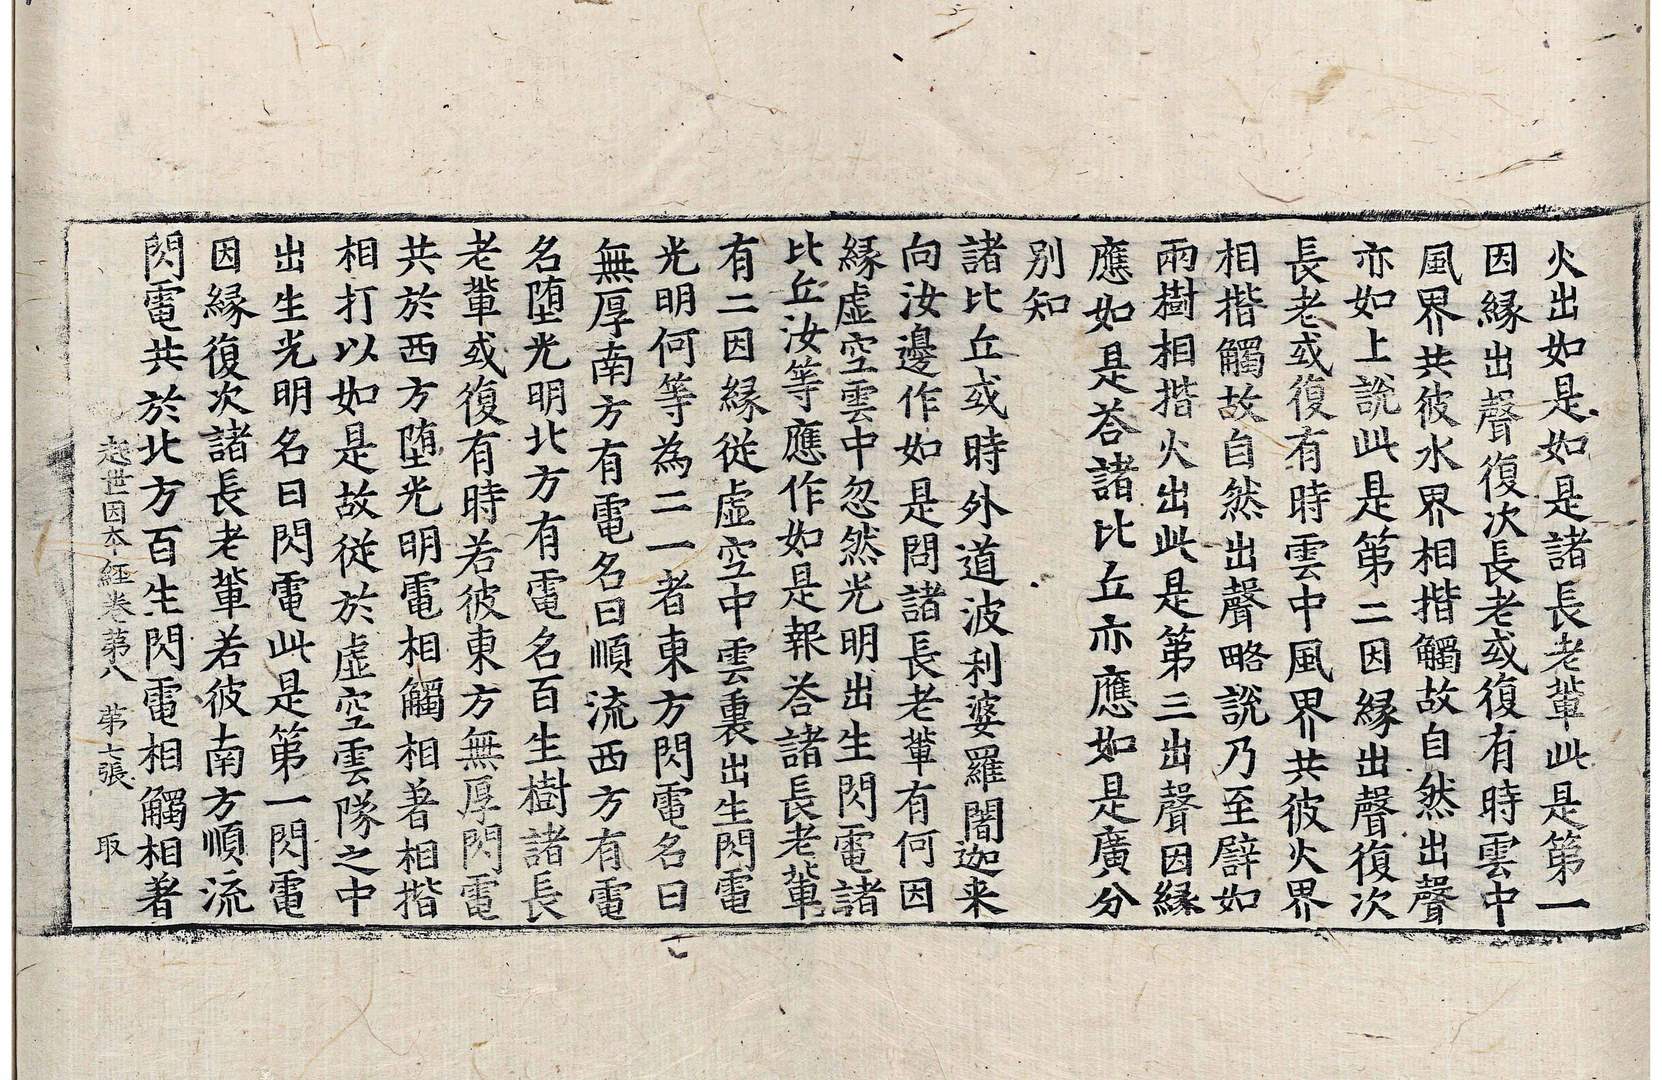 火出如是如是諸長老輩此是第一
因縁出聲復次長老或復有時雲中
風界共彼水界相揩觸故自然出聲
亦如上說此是第二因縁出聲復次
長老或復有時雲中風界共彼火界
相揩觸故自然出聲略說乃至譬如
兩樹相揩火出此是第三出聲因縁
應如是荅諸比丘亦應如是廣分
別知
諸比丘或時外道波利婆羅闍迦来
向汝邊作如是問諸長老輩有何因
縁虛空雲中忽然光明出生閃電諸
比丘汝等應作如是報荅諸長老輩
有二因縁從虛空中雲裏出生閃電
光明何等為二一者東方閃電名曰
無厚南方有電名曰順流西方有電
名堕光明北方有電名百生樹諸長
老輩或復有時若彼東方無厚閃電
共於西方堕光明電相觸相著相揩
相打以如是故從於虛空雲隊之中
出生光明名曰閃電此是第一閃電
因縁復次諸長老輩若彼南方順流
閃電共於北方百生閃電相觸相著
起世因本經卷第八 第七張 取